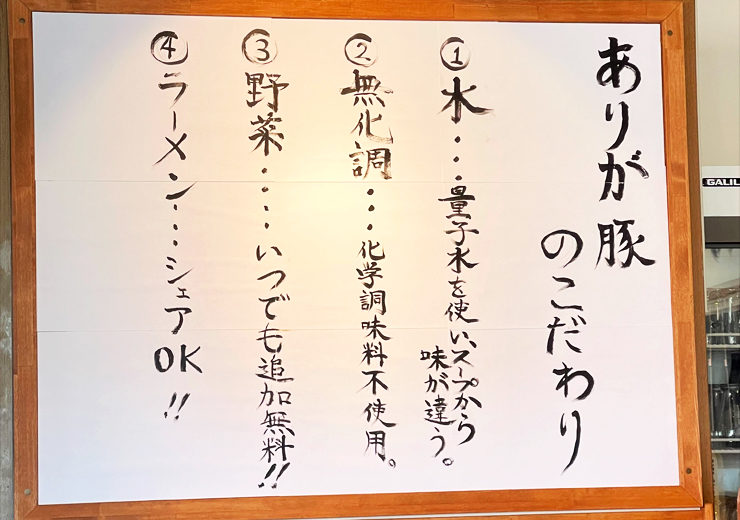 ありが豚
のこだわり
①水・・・量子水を使い、スープから
味が違う。
②無化調・・・化学調味料不使用。
③野菜・・・・いつでも追加無料!!
④ラーメン・・・シェアOK!!
GALIL